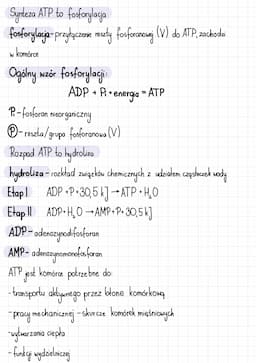 Synteza ATP to fosforylacja
fosforylacja- przyłączenie reszty fosforanowej (V) do ATP, zachodzi
w komórce
Ogólny wzór fosforylacji:
ADP + Pi + energia = ATP
Pi - fosforan nieorganiczny
Ⓟ - reszta/grupa fosforanowa (V)
Rozpad ATP to hydroliza
hydroliza - rozkład związków chemicznych z udziałem cząsteczek wody
Etap I ADP + P + 30,5 kJ → ATP + H₂O
Etap II ADP + H₂O → AMP + P + 30,5 kJ
ADP - adenozynodifosforan
AMP - adenozynomonofosforan
ATP jest komórce potrzebne do:
- transportu aktywnego przez błonę komórkową
- pracy mechanicznej - skurcze komórek mięśniowych
- wytwarzania ciepła
- funkcji wydzielniczej